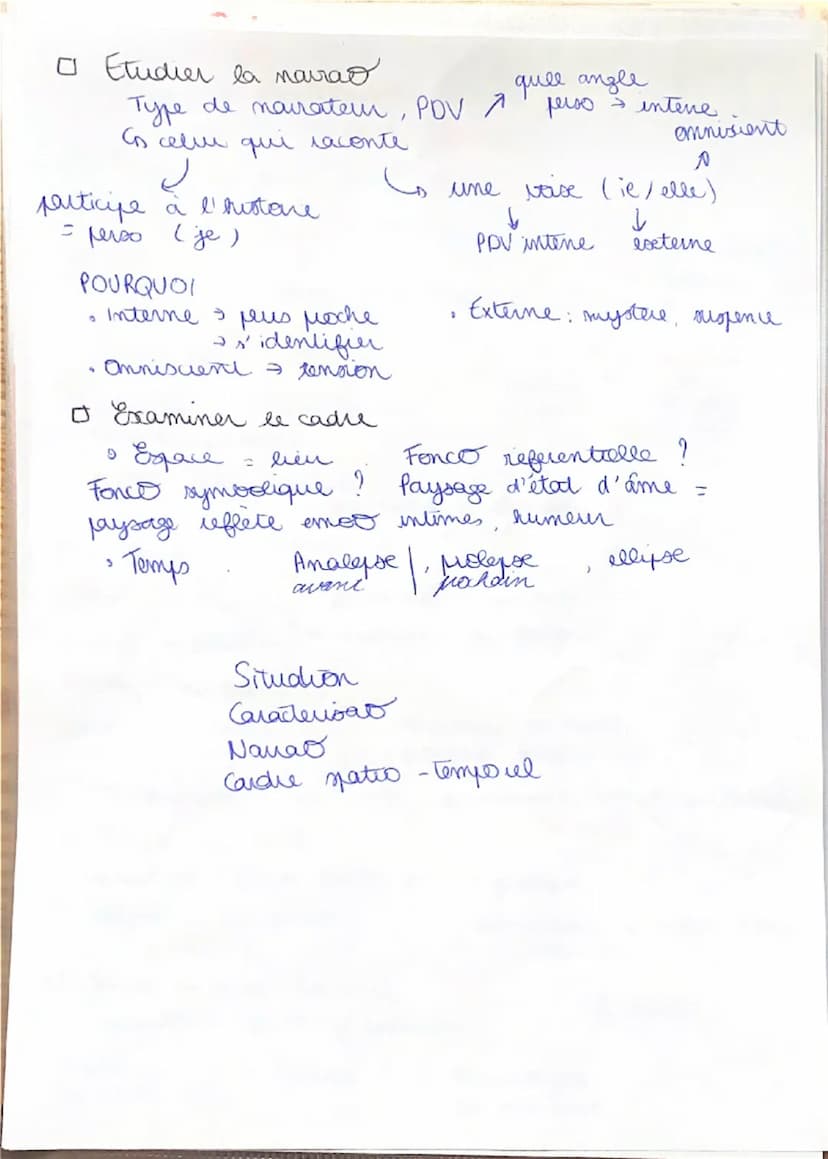 □ Etudier la narrat°
quel angle
Type de narrateur, PDV ↗ perso → interne
↳ celui qui raconte
omniscient
participe à l'histoire
= perso (je)
↳ une voix (il/elle)
PDV interne externe
POURQUOI
• Interne → plus proche
→ s'identifier
• Externe : mystère, suspence
• Omniscient → tension
□ Examiner le cadre
• Espace = lieu Fonct° referentielle ?
Fonct° symbolique ? Paysage d'état d'âme =
paysage reflète emot° intimes, humeur
• Temps Analepse | , prolepse , ellipse
avant | prochain
Situation
Caractérisat°
Narrat°
Cadre spatio-temporel